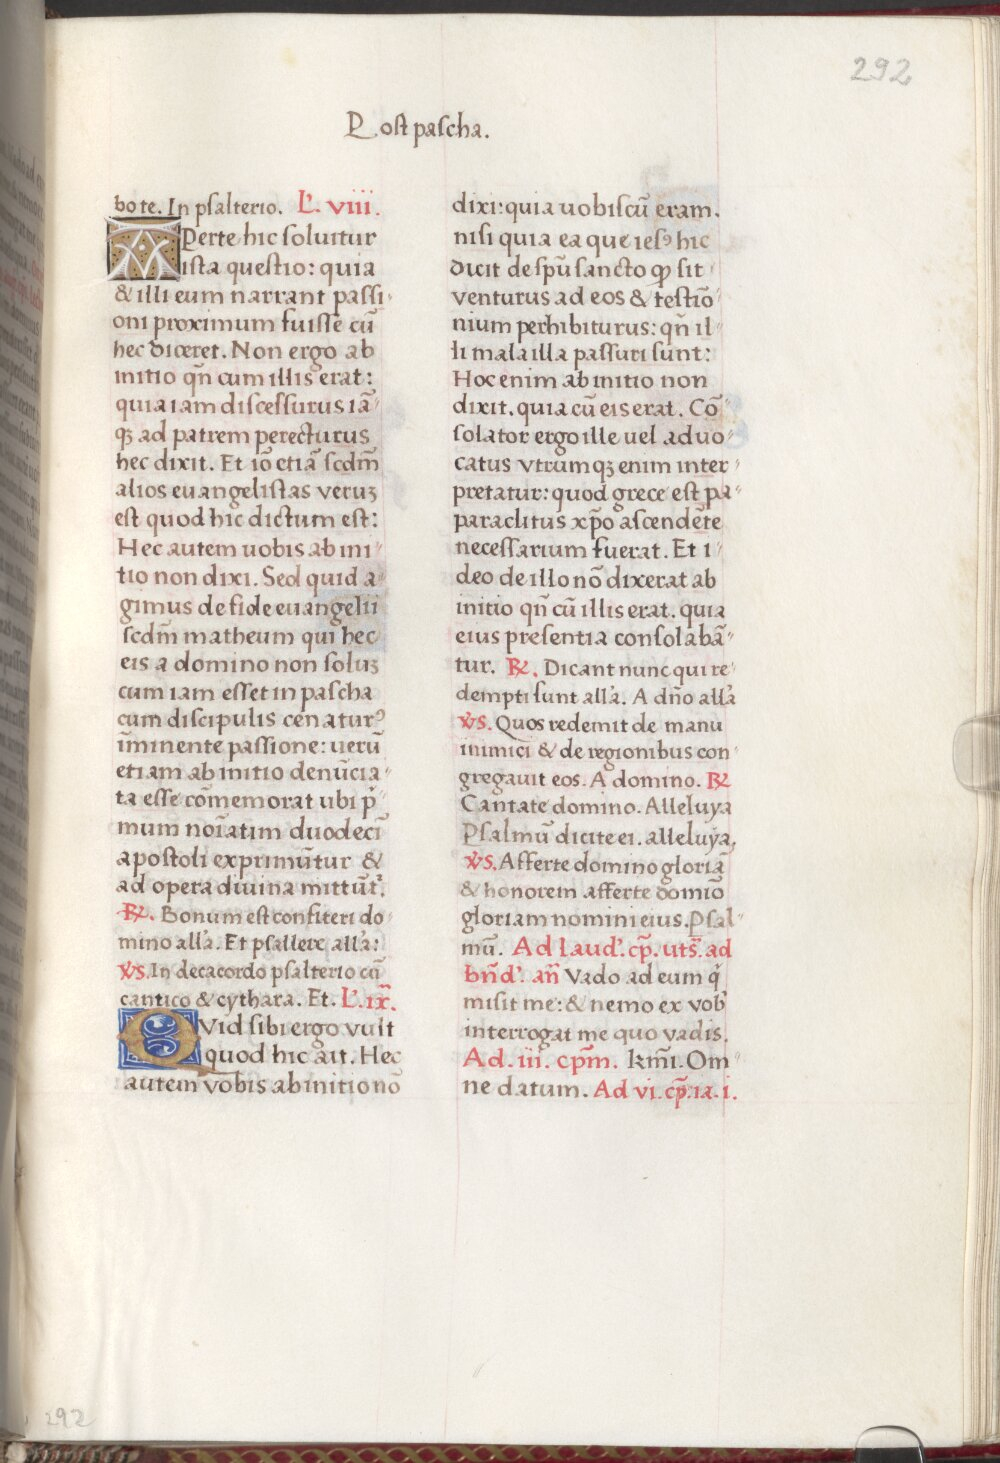 292
Post pascha.
bo te. In psalterio. L'. viii.
APerte hic soluitur
ista questio: quia
& illi eum narrant passi
oni proximum fuisse cū
hec diceret. Non ergo ab
initio qn̄ cum illis erat:
quia iam discessurus iā
qꝫ ad patrem perecturus
hec dixit. Et iō etiā scdm̄
alios euangelistas veruꝫ
est quod hic dictum est:
Hec autem uobis ab ini
tio non dixi. Sed quid a
gimus de fide euangelii
scdm̄ matheum qui hec
eis a domino non soluꝫ
cum iam esset in pascha
cum discipulis cenaturꝰ
īminente passione: uerū
etiam ab initio denūcia
ta esse cōmemorat ubi p̓
mum noīatim duodecī
apostoli exprimūtur &
ad opera diuina mittūt᷑.
R̷. Bonum est confiteri do
mino all'a. Et psallere all'a:
V̓S. In decacordo psalterio cū
cantico & cythara. Et. L'. ix̄.
QVid sibi ergo vult
quod hic ait. Hec
autem vobis ab initio nō
dixi: quia uobiscū eram.
nisi quia ea que iesꝰ hic
dicit de spū sancto ꝙ sit
venturus ad eos & testiō
nium perhibiturus: qn̄ il
li mala illa passuri sunt:
Hoc enim ab initio non
dixit. quia cū eis erat. Cō
solator ergo ille uel aduo
catus vtrumqꝫ enim inter
pretatur: quod grece est pa
paraclitus xp̄o ascendēte
necessarium fuerat. Et i
deo de illo nō dixerat ab
initio qn̄ cū illis erat. quia
eius presentia consolabā
tur. R̷. Dicant nunc qui re
dempti sunt all'a. A dn̄o all'a
V̓S. Quos redemit de manu
inimici & de regionibus con
gregauit eos. A domino. R̷
Cantate domino. Alleluya
Psalmū dicite ei. alleluya,
V̓S. Afferte domino gloriā
& honorem afferte domiō
gloriam nomini eius. Psal
mū. Ad laud'. cp̄. ut s̄. ad
bn̄d'. an̄ Vado ad eum q̓
misit me: & nemo ex vob'
interrogat me quo vadis.
Ad. iii. cpm̄. km̄i. Om
ne datum. Ad vi. cp̄. ia. i.
292